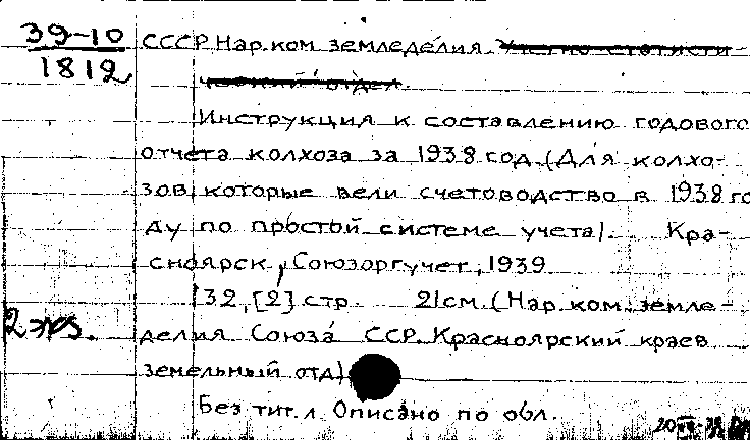 39-10
1812
СССР Нар. ком. земледелия. Учетно-статисти-
ческий отдел.
Инструкция к составлению годового
отчета колхоза за 1938 год. (Для колхо-
зов, которые вели счетоводство в 1938 го
ду по простой системе учета). Кра-
сноярск, Союзоргучет, 1939
32, [2] стр. 21см. (Нар. ком. земле-
2 экз.
делия Союза ССР. Красноярский краев.
земельный отд)
Без тит. л. Описано по обл.